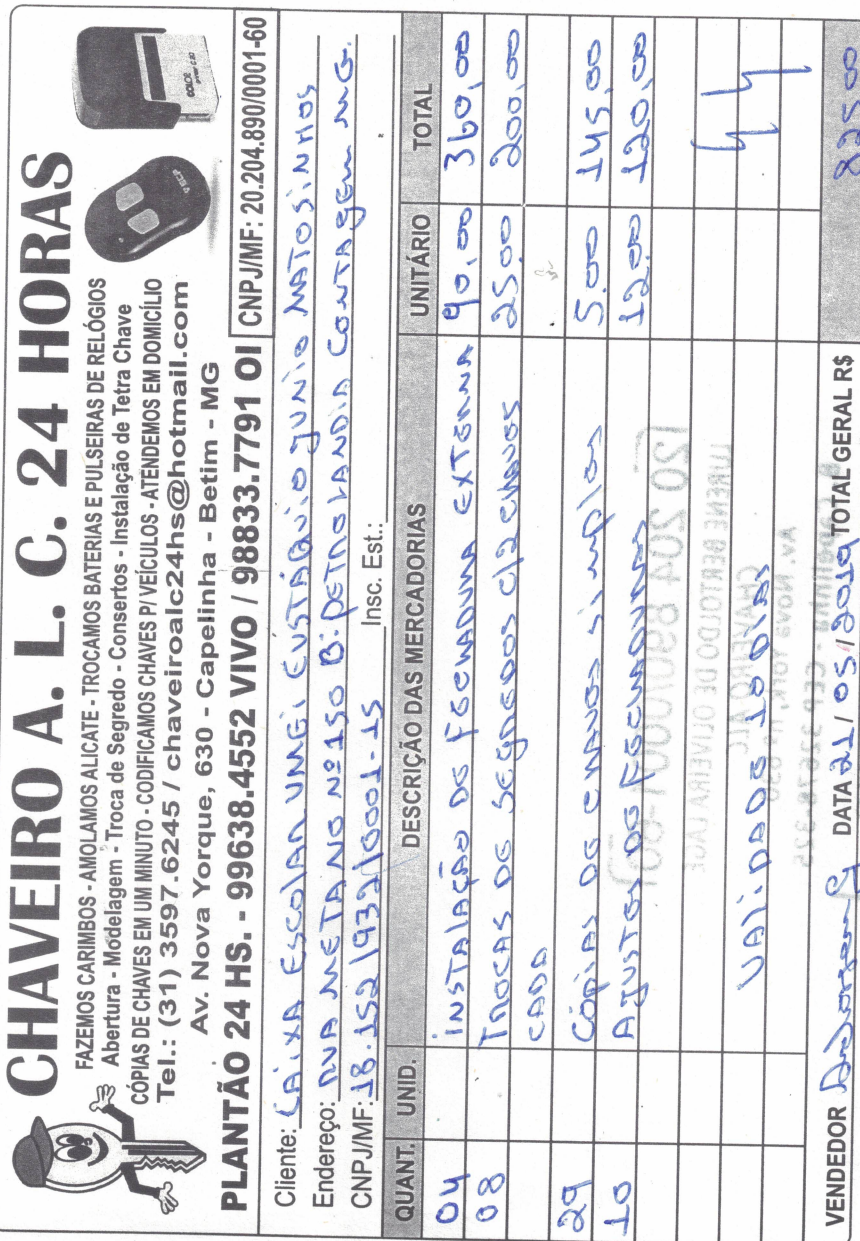 CHAVEIRO A. L. C. 24 HORAS
FAZEMOS CARIMBOS - AMOLAMOS ALICATE - TROCAMOS BATERIAS E PULSEIRAS DE RELÓGIOS
Abertura - Modelagem - Troca de Segredo - Consertos - Instalação de Tetra Chave
CÓPIAS DE CHAVES EM UM MINUTO - CODIFICAMOS CHAVES P/ VEÍCULOS - ATENDEMOS EM DOMICÍLIO
Tel.: (31) 3597.6245 / chaveiroalc24hs@hotmail.com
Av. Nova Yorque, 630 - Capelinha - Betim - MG
PLANTÃO 24 HS. - 99638.4552 VIVO / 98833.7791 OI CNPJ/MF: 20.204.890/0001-60
Cliente: CAIXA ESCOLAR UMEI EUSTÁQUIO JUNIO MATOSINHOS
Endereço: RUA METANO Nº 150 B: PETROLANDIA CONTAGEM MG.
CNPJ/MF: 18.152.932/0001-15 Insc. Est.:
QUANT. UNID. DESCRIÇÃO DAS MERCADORIAS UNITÁRIO TOTAL
04 INSTALAÇÃO DE FECHADURA EXTERNA 90,00 360,00
08 TROCAS DE SEGREDOS C/2 CHAVES 25.00 200,00
CADA
29 CÓPIAS DE CHAVES SIMPLES 5.00 145,00
10 AJUSTES DE FECHADURAS 12.00 120,00
20 204 890/0001-60
LURENE BERTOLDO DE OLIVEIRA LAGE
CHAVEIRO ALC
Av. Nova York, nº 630
B. Capelinha - CEP 32678-325
VALIDADE 10 DIAS
VENDEDOR DATA 21/05/2019 TOTAL GERAL R$ 825.00